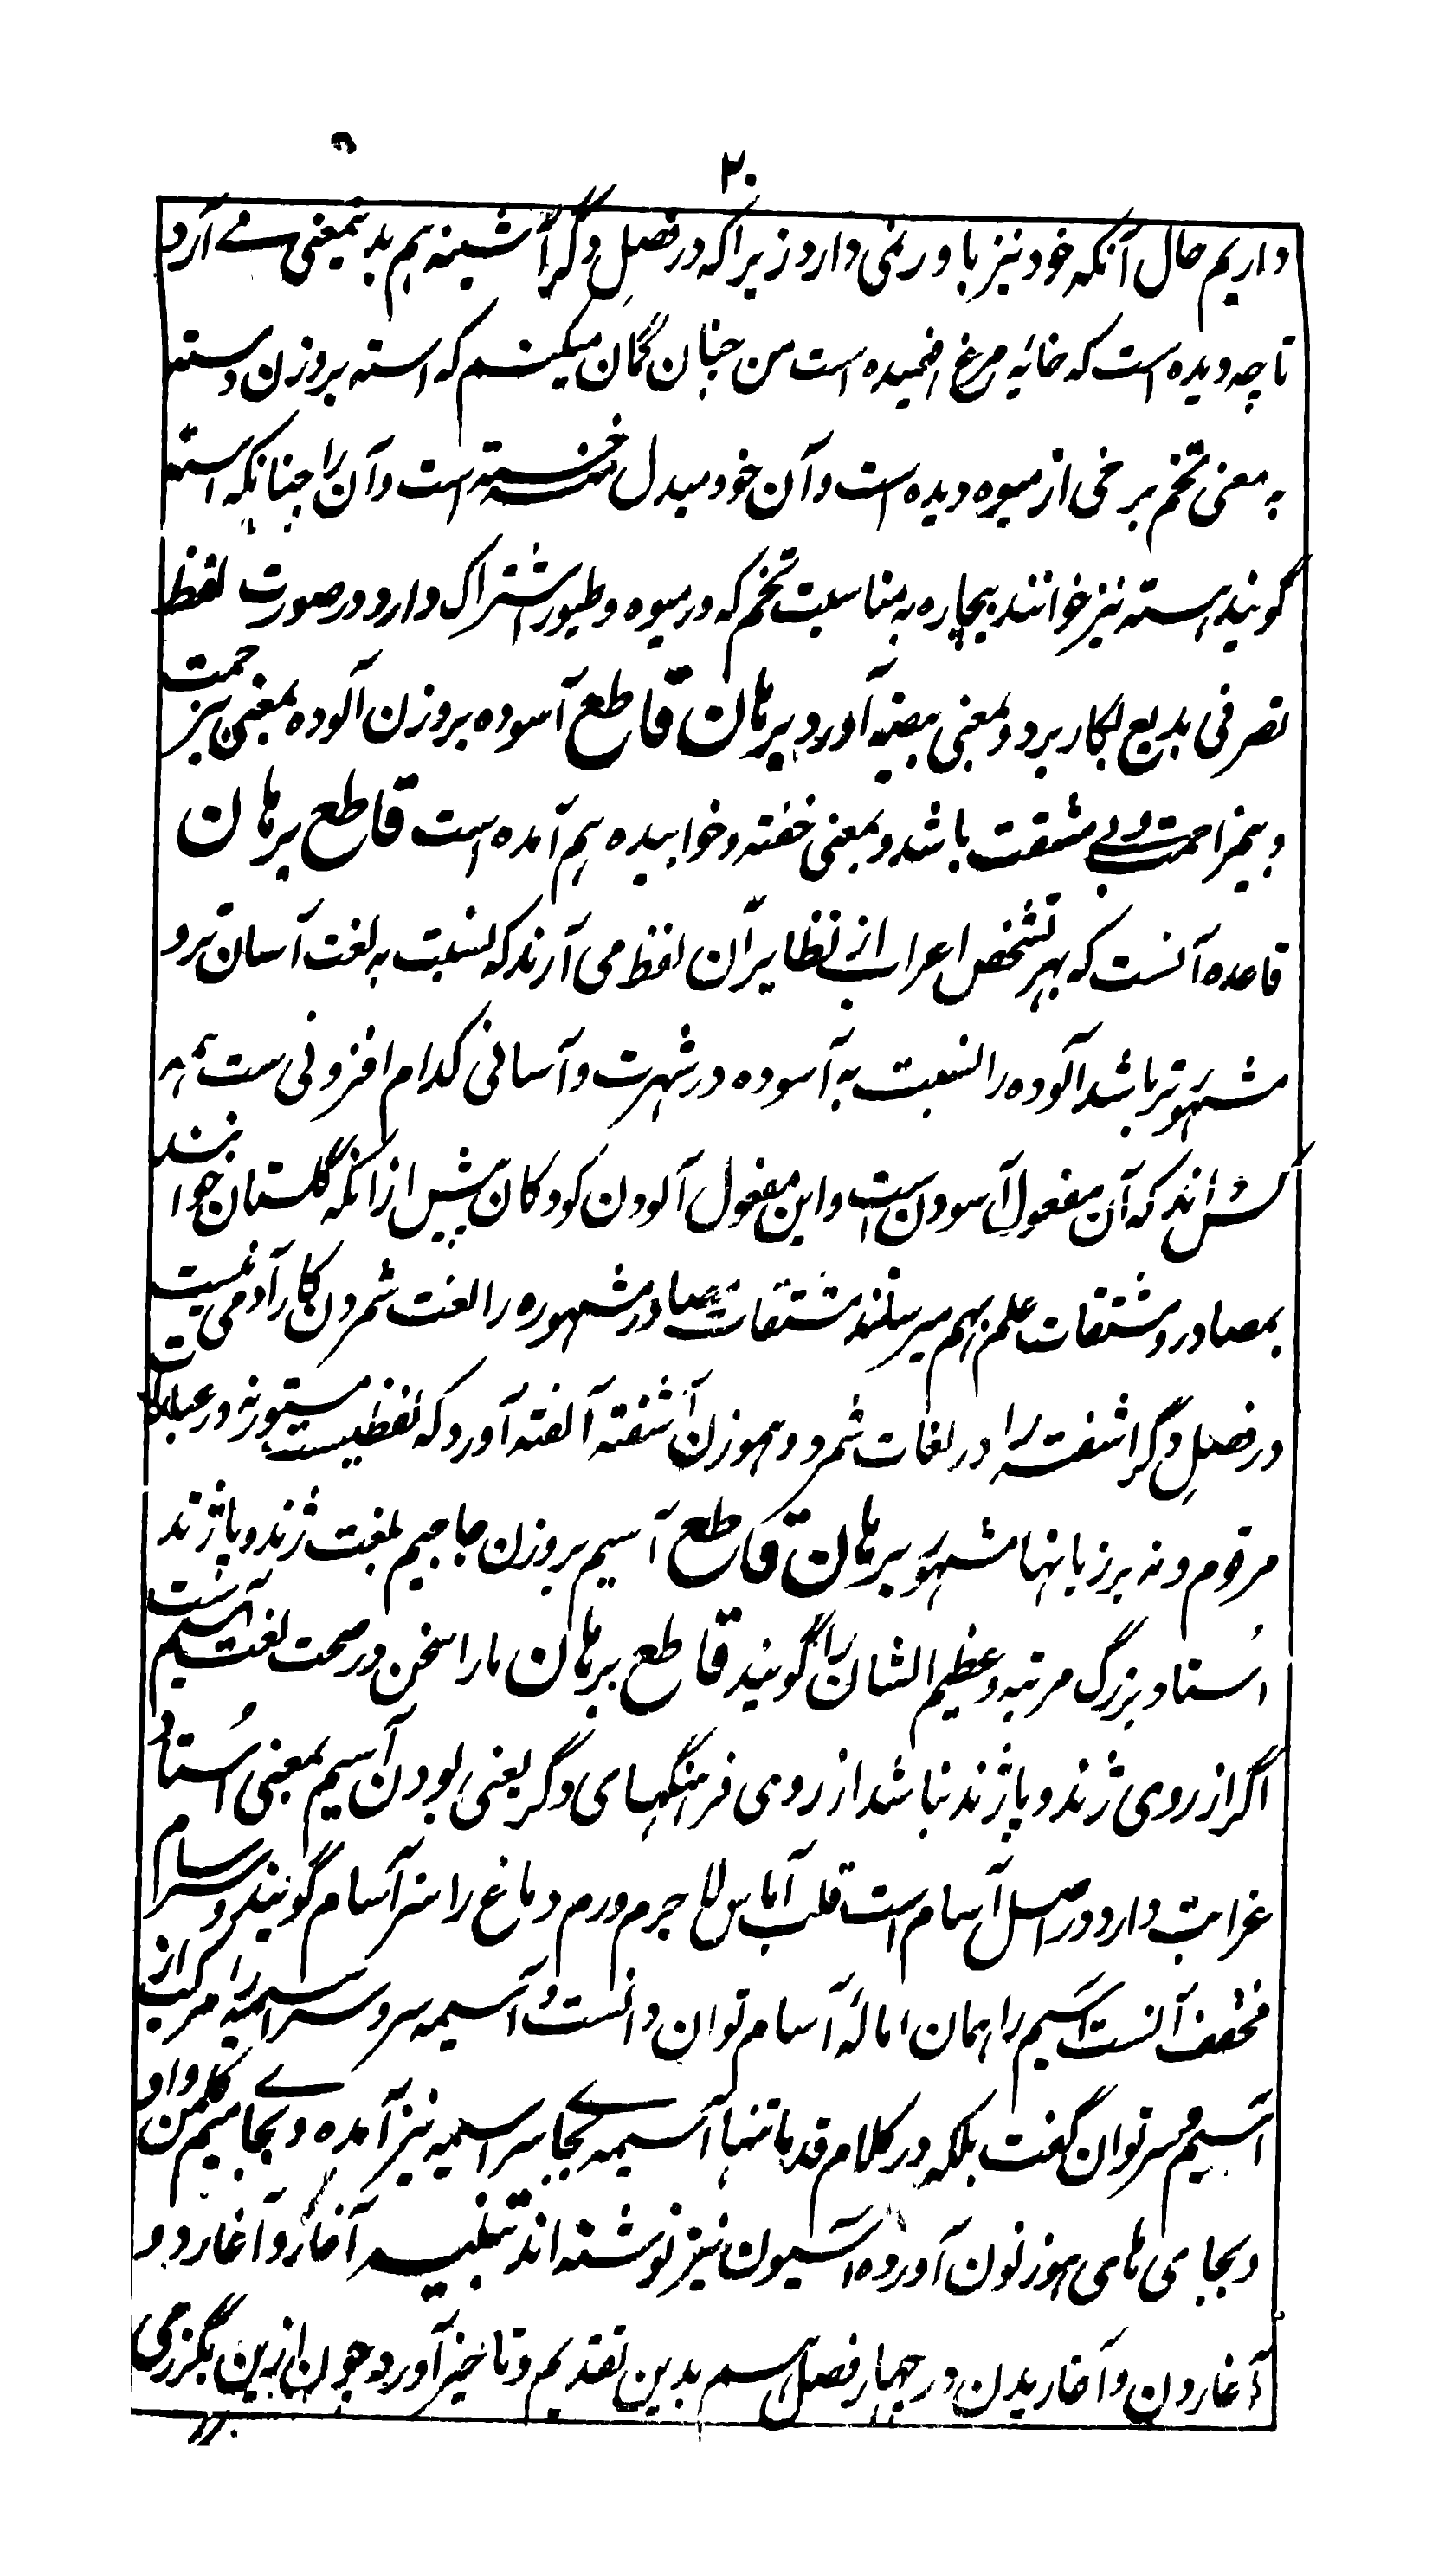 ۲۰
داریم حال آنکه خود نیز باور نمی دارد زیرا که در فصلِ دگر آشینه هم بدینمعنی می آرد
تا چه دیده است که خائه مرغ فهمیده است من چنان گمان میکنم که استه بروزن دسته
به معنی تخم برخی از میوه دیده است و آن خود مبدل خسته است و آن را چنانکه استه
گویند هسته نیز خوانند بیچاره به مناسبت تخم که در میوه و طیور اشتراک دارد در صورت لفظ
تصرفی بدیع بکار برد و بمعنی بیضه آورد برهان قاطع آسوده بروزن آلوده بمعنی بیزحمت
و بیمزاحمت و بی مشقت باشد و بمعنی خفته و خوابیده هم آمده است قاطع برهان
قاعده آنست که بهر تشخص اعراب از نظایر آن لفظ می آرند که نسبت به لغت آسان تر و
مشهور تر باشد آلوده را نسبت به آسوده در شهرت و آسانی کدام افزونی ست همه
کس داند که آن مفعولِ آسودن است و این مفعول آلودن کودکان پیش ازانکه گلستان خوانند
بمصادر و مشتقات علم بهم میرسانند مشتقات مصادر مشهوره را لغت شمردن کار آدمی نیست
در فصلِ دگر آشفته را در لغات شمرد و هموزن آشفته آلفته آورد که لفظیست نه در عبارات
مرقوم و نه بر زبانها مشهور برهان قاطع آسیم بروزن جاجیم بلغت ژند و پاژند
اُستاد بزرگ مرتبه و عظیم الشان را گویند قاطع برهان ما را سخن در صحت لغت آسیم
اگر از روی ژند و پاژند نباشد از روی فرهنگهای دگر یعنی بودن آسیم بمعنی اُستاد
غرابت دارد در اصل آسام است قلب آماس لا جرم ورم دماغ را سرآسام گویند و سرسام
مخفف آنست آسیم را همان امالۀ آسام توان دانست و آسیمه سر و سراسیمه را مرکب از
آسیم و سر توان گفت بلکه در کلام قدما تنها آسیمه بجای سراسیمه نیز آمده و بجای میم کلمن واو
و بجای های هوز نون آورده آسیون نیز نوشته اند تنبیه آغار و آغارد و
آغاردن و آغاریدن در چهار فصل هم بدین تقدیم و تاخیر آورد چون ازین بگزرمی